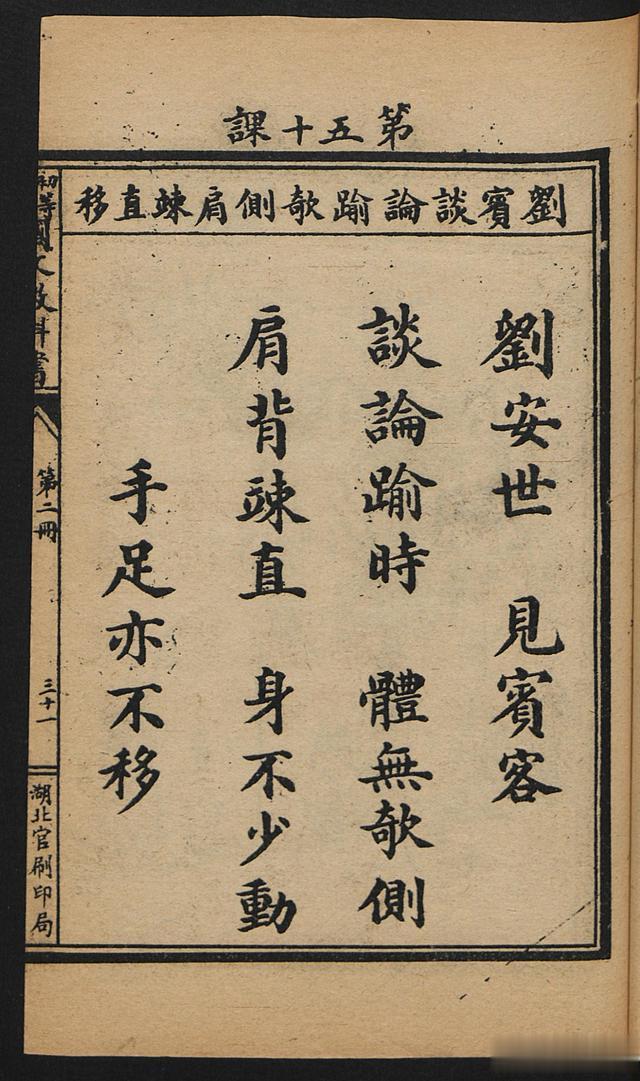 第五十課
劉賓談論踰欹側肩竦直移
劉安世 見賓客
談論踰時 體無欹側
肩背竦直 身不少動
手足亦不移
初等國文教科書 第二冊 三十一 湖北官刷印局